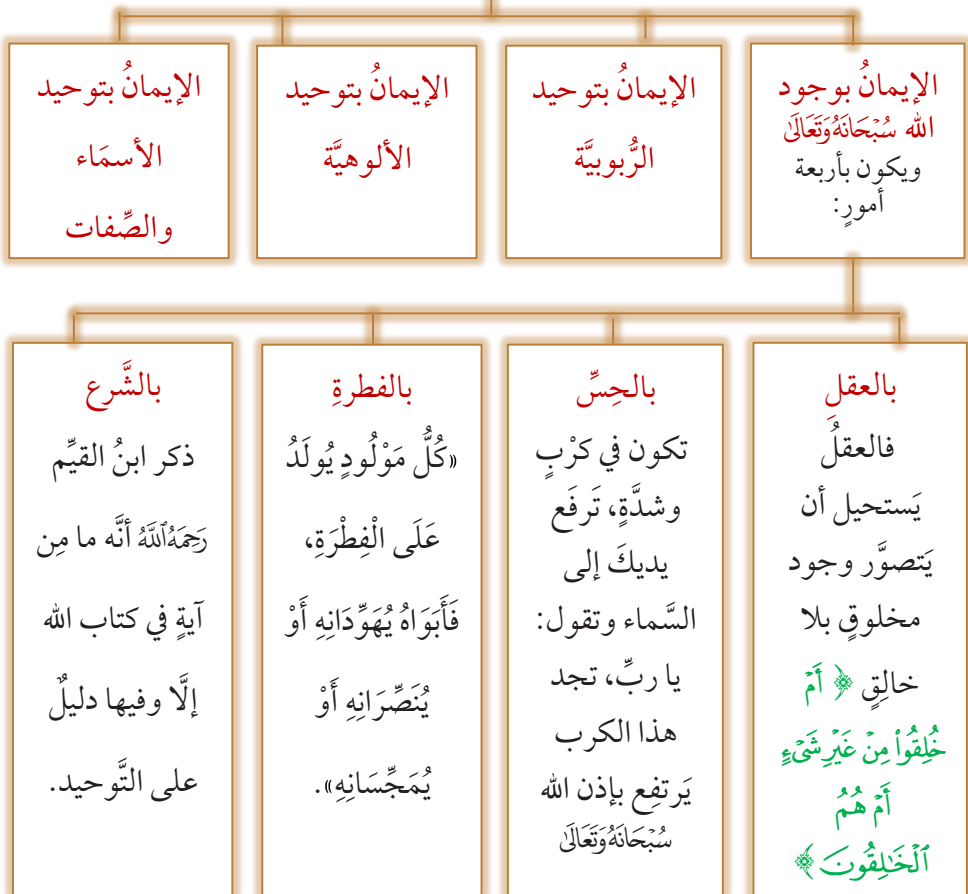 الإيمانُ بوجود
الله سُبْحَانَهُ وَتَعَالَىٰ
ويكون بأربعة
أمورٍ:
الإيمانُ بتوحيد
الرُّبوبيَّة
الإيمانُ بتوحيد
الألوهيَّة
الإيمانُ بتوحيد
الأسمَاء
والصِّفات
بالعقلِ
فالعقلُ
يَستحيل أن
يَتصوَّر وجود
مخلوقٍ بلا
خالِقٍ ﴿ أَمْ
خُلِقُوا۟ مِنْ غَيْرِ شَىْءٍ
أَمْ هُمُ
ٱلْخَٰلِقُونَ ﴾
بالحِسِّ
تكون في كرْبٍ
وشدَّةٍ، تَرفَع
يديكَ إلى
السَّماء وتقول:
يا ربِّ، تجد
هذا الكرب
يَرتفِع بإذن الله
سُبْحَانَهُ وَتَعَالَىٰ
بالفطرةِ
«كُلُّ مَوْلُودٍ يُولَدُ
عَلَى الْفِطْرَةِ،
فَأَبَوَاهُ يُهَوِّدَانِهِ أَوْ
يُنَصِّرَانِهِ أَوْ
يُمَجِّسَانِهِ».
بالشَّرع
ذكر ابنُ القيِّم
رَحِمَهُ ٱللَّهُ أنَّه ما مِن
آيةٍ في كتاب الله
إلَّا وفيها دليلٌ
على التَّوحيد.